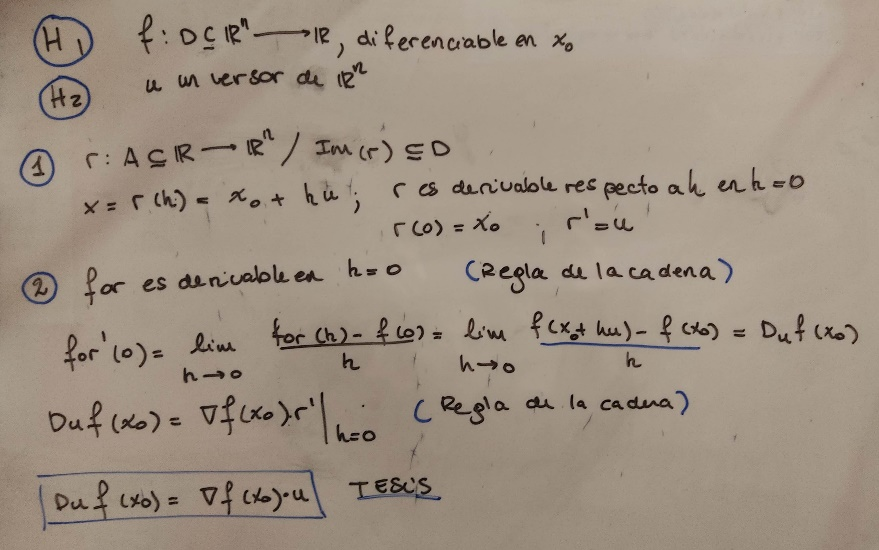 H1 f : D ⊆ ℝⁿ ⟶ ℝ, diferenciable en x₀
H2 u un versor de ℝⁿ
1 r : A ⊆ ℝ ⟶ ℝⁿ / Im(r) ⊆ D
x = r(h) = x₀ + hu ; r es derivable respecto a h en h=0
r(0) = x₀ ; r' = u
2 for es derivable en h=0 (Regla de la cadena)
for'(0) = lim h→0 (for(h) - f(0))/h = lim h→0 (f(x₀+hu) - f(x₀))/h = Duf(x₀)
Duf(x₀) = ∇f(x₀).r'|h=0 (Regla de la cadena)
Duf(x₀) = ∇f(x₀)·u TESIS